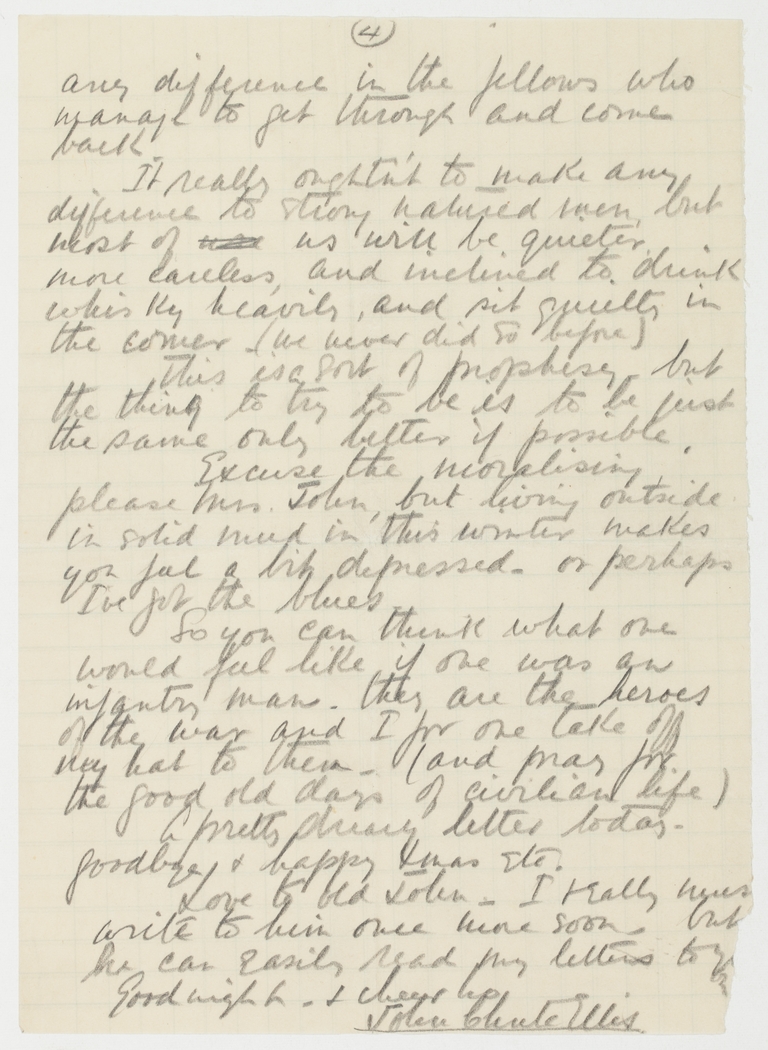 4
any difference in the fellows who
manage to get through and come
back.
It really oughtn't to make any
difference to strong natured men, but
most of us will be quieter,
more careless, and inclined to drink
whisky heavily, and sit quietly in
the corner. (we never did so before)
This is a sort of prophesy - but
the thing to try to be is to be just
the same only better if possible.
Excuse the moralising,
please Mrs. John, but living outside
in solid mud in this winter makes
you feel a bit depressed - or perhaps
I've got the blues
So you can think what one
would feel like if one was an
infantry man - they are the heroes
of the war and I for one take off
my hat to them - (and pray for
the good old days of civilian life)
A pretty dreary letter today.
goodbye, & happy Xmas etc.
Love to old John - I really must
write to him once more soon - but
he can easily read my letters to
Good night - & cheer ho
John Chute Ellis